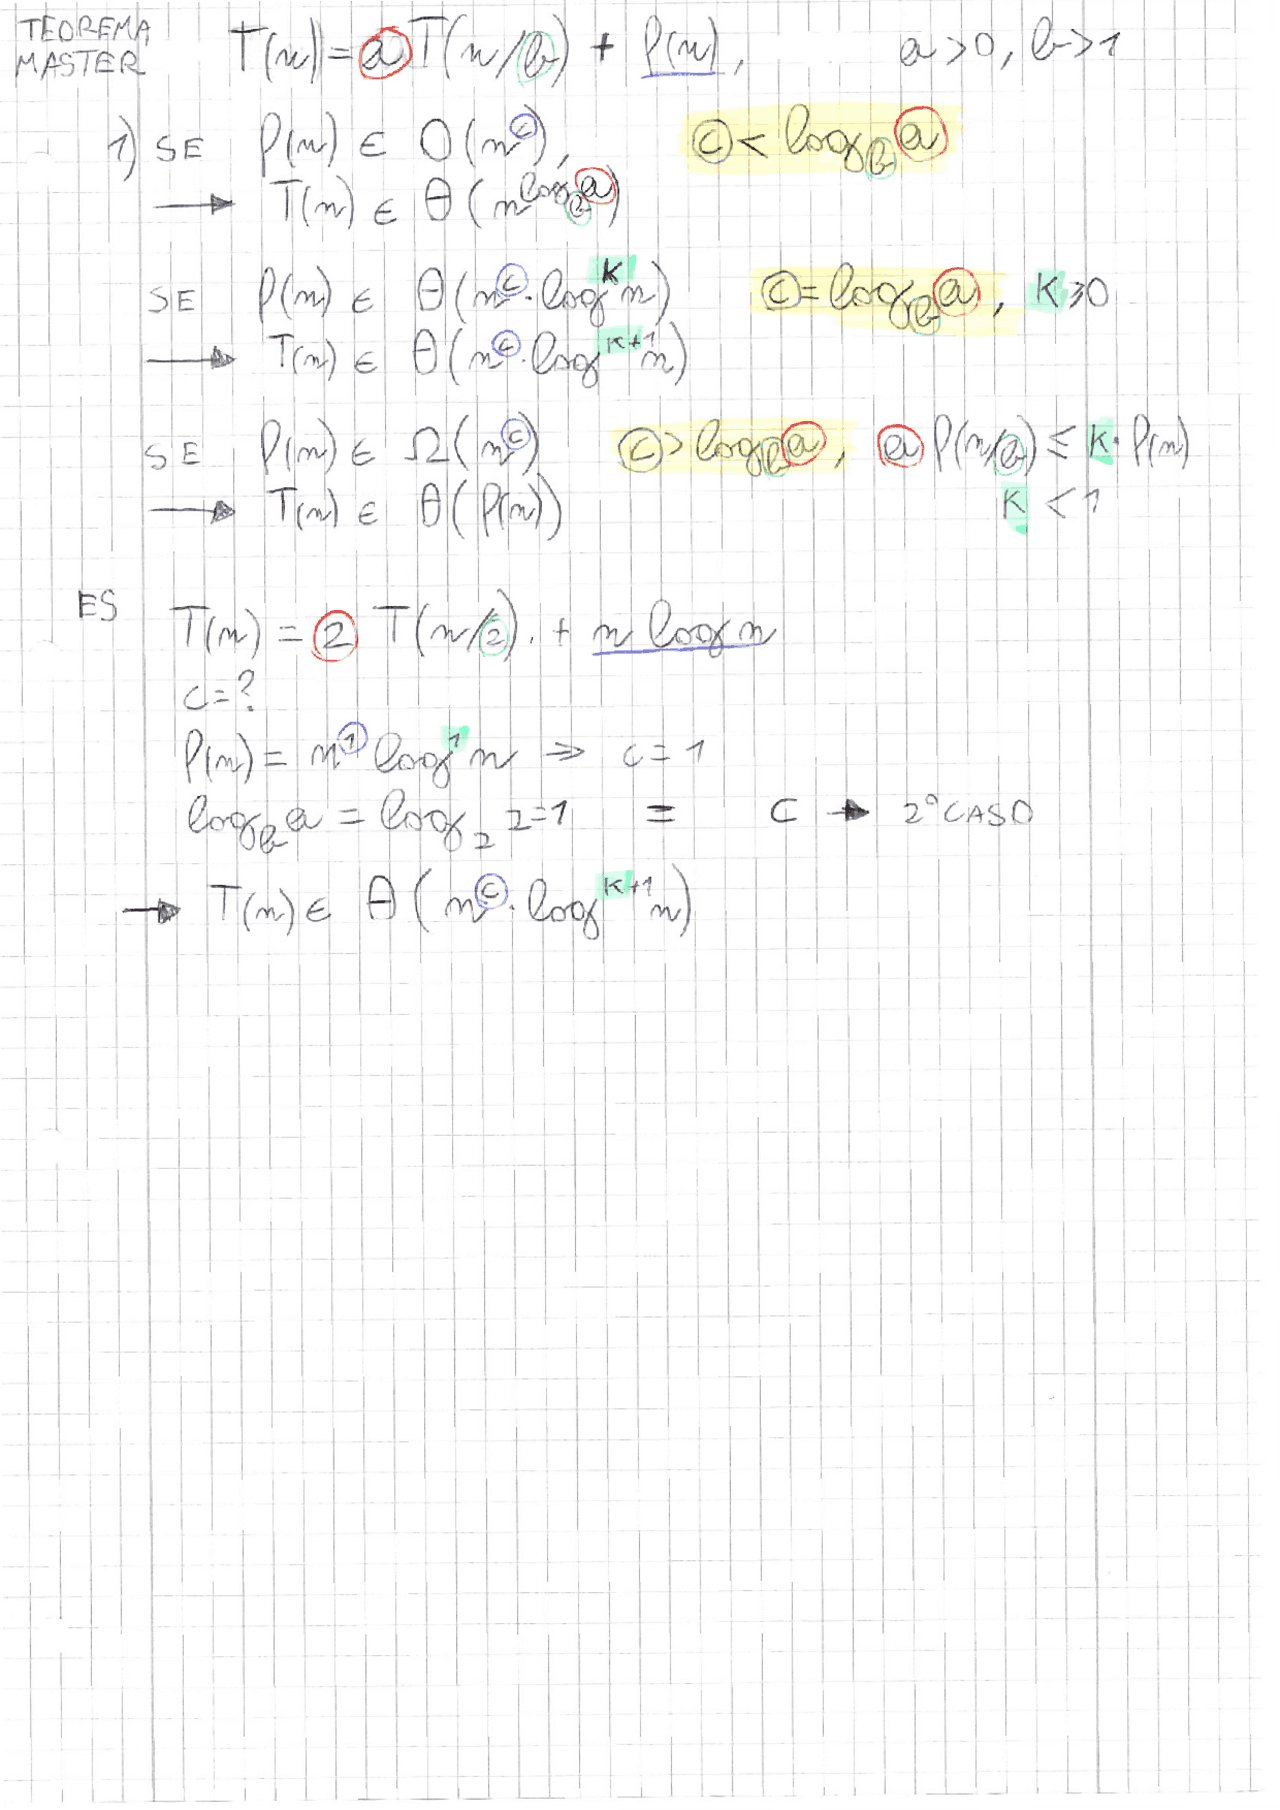 TEOREMA MASTER T(n) = a T(n/b) + f(n), a > 0, b > 1
1) SE f(n) ∈ O(n^c), c < log_b a
→ T(n) ∈ Θ(n^(log_b a))
SE f(n) ∈ Θ(n^c · log^k n) c = log_b a, K ≥ 0
→ T(n) ∈ Θ(n^c · log^(k+1) n)
SE f(n) ∈ Ω(n^c) c > log_b a, a f(n/b) ≤ K · f(n)
→ T(n) ∈ Θ(f(n)) K < 1
ES T(n) = 2 T(n/2) + n log n
c = ?
f(n) = n^1 log^1 n ⇒ c = 1
log_b a = log_2 2 = 1 = C → 2° CASO
→ T(n) ∈ Θ(n^c · log^(k+1) n)